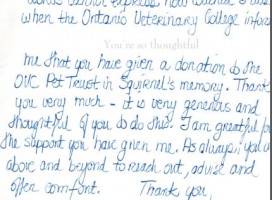 words cannot express how touched I was
when the Ontario Veterinary College inform
You're so thoughtful
me that you have given a donation to the
OVC Pet Trust in Squirrel's memory. Thank
you very much - it is very generous and
thoughtful of you to do this. I am greatful for
the support you have given me. As always, you
above and beyond to reach out, advise and
offer comfort. Thank you,